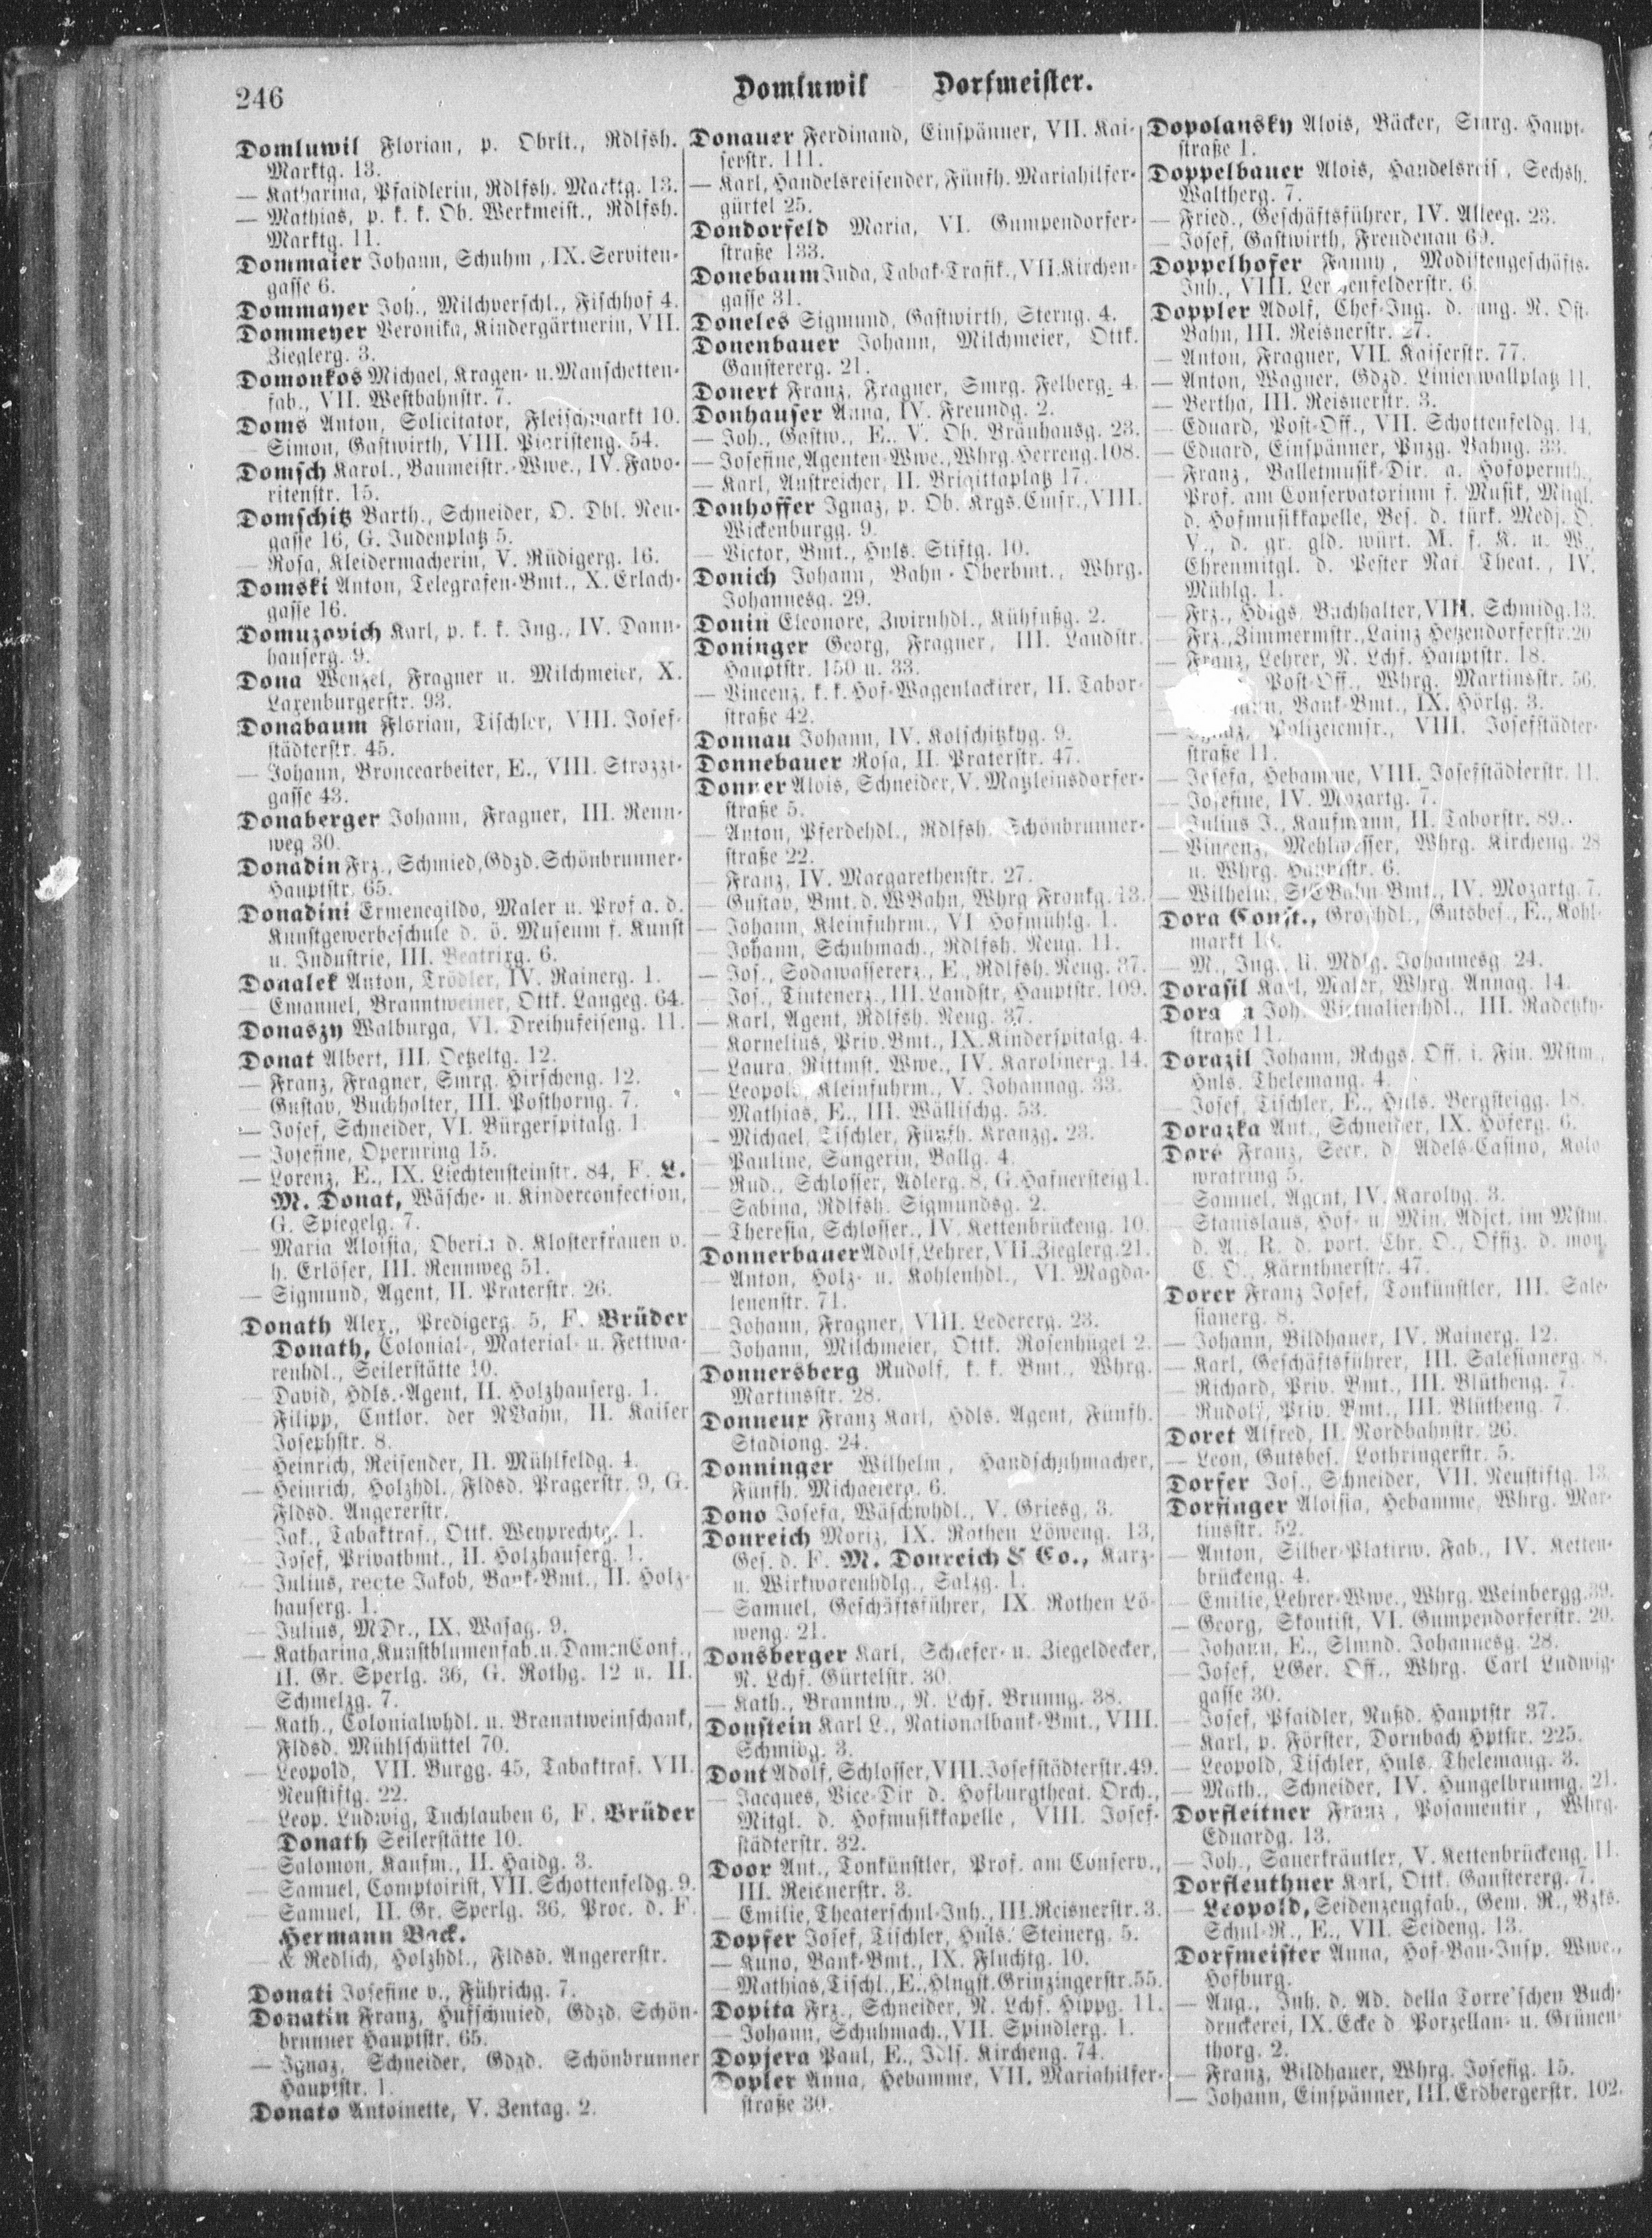 246
Domluwil — Dorfmeister.
Domluwil Florian, p. Obrlt., Rdlfsh.
Marktg. 13.
— Katharina, Pfaidlerin, Rdlfsh. Marktg. 13.
— Mathias, p. k. k. Ob. Werkmeist., Rdlfsh.
Marktg. 11.
Dommaier Johann, Schuhm., IX. Serviten-
gasse 6.
Dommayer Joh., Milchverschl., Fischhof 4.
Dommeyer Veronika, Kindergärtnerin, VII.
Zieglerg. 3.
Domonkos Michael, Kragen- u. Manschetten-
fab., VII. Westbahnstr. 7.
Doms Anton, Solicitator, Fleischmarkt 10.
— Simon, Gastwirth, VIII. Piaristeng. 54.
Domsch Karol., Baumeistr.-Wwe., IV. Favo-
ritenstr. 15.
Domschitz Barth., Schneider, O. Dbl. Neu-
gasse 16, G. Judenplatz 5.
— Rosa, Kleidermacherin, V. Rüdigerg. 16.
Domski Anton, Telegrafen-Bmt., X. Erlach-
gasse 16.
Domuzovich Karl, p. k. k. Ing., IV. Dann-
hauserg. 9.
Dona Wenzel, Fragner u. Milchmeier, X.
Laxenburgerstr. 93.
Donabaum Florian, Tischler, VIII. Josef-
städterstr. 45.
— Johann, Broncearbeiter, E., VIII. Strozzi-
gasse 43.
Donaberger Johann, Fragner, III. Renn-
weg 30.
Donadin Frz., Schmied, Gdzd. Schönbrunner-
Hauptstr. 65.
Donadini Ermenegildo, Maler u. Prof a. d.
Kunstgewerbeschule d. ö. Museum f. Kunst
u. Industrie, III. Beatrixg. 6.
Donalek Anton, Trödler, IV. Rainerg. 1.
— Emanuel, Branntweiner, Ottk. Langeg. 64.
Donaszy Walburga, VI. Dreihufeiseng. 11.
Donat Albert, III. Oetzeltg. 12.
— Franz, Fragner, Smrg. Hirscheng. 12.
— Gustav, Buchhalter, III. Posthorng. 7.
— Josef, Schneider, VI. Bürgerspitalg. 1.
— Josefine, Opernring 15.
— Lorenz, E., IX. Liechtensteinstr. 84, F. L.
M. Donat, Wäsche- u. Kinderconfection,
G. Spiegelg. 7.
— Maria Aloisia, Oberin d. Klosterfrauen v.
h. Erlöser, III. Rennweg 51.
— Sigmund, Agent, II. Praterstr. 26.
Donath Alex., Predigerg. 5, F. Brüder
Donath, Colonial-, Material- u. Fettwa-
renhdl., Seilerstätte 10.
— David, Hdls.-Agent, II. Holzhauserg. 1.
— Filipp, Cntlor. der NBahn, II. Kaiser
Josephstr. 8.
— Heinrich, Reisender, II. Mühlfeldg. 4.
— Heinrich, Holzhdl., Fldsd. Pragerstr. 9, G.
Fldsd. Angererstr.
— Jak., Tabaktraf., Ottk. Weyprechtg. 1.
— Josef, Privatbmt., II. Holzhauserg. 1.
— Julius, recte Jakob, Bank-Bmt., II. Holz-
hauserg. 1.
— Julius, MDr., IX. Wasag. 9.
— Katharina, Kunstblumenfab. u. DamenConf.,
II. Gr. Sperlg. 36, G. Rothg. 12 u. II.
Schmelzg. 7.
— Kath., Colonialwhdl. u. Branntweinschank,
Fldsd. Mühlschüttel 70.
— Leopold, VII. Burgg. 45, Tabaktraf. VII.
Neustiftg. 22.
— Leop. Ludwig, Tuchlauben 6, F. Brüder
Donath Seilerstätte 10.
— Salomon, Kaufm., II. Haidg. 3.
— Samuel, Comptoirist, VII. Schottenfeldg. 9.
— Samuel, II. Gr. Sperlg. 36, Proc. d. F.
Hermann Back.
— & Redlich, Holzhdl., Fldsd. Angererstr.
Donati Josefine v., Führichg. 7.
Donatin Franz, Hufschmied, Gdzd. Schön-
brunner Hauptstr. 65.
— Ignaz, Schneider, Gdzd. Schönbrunner
Hauptstr. 1.
Donato Antoinette, V. Zentag. 2.
Donauer Ferdinand, Einspänner, VII. Kai-
serstr. 111.
— Karl, Handelsreisender, Fünfh. Mariahilfer-
gürtel 25.
Dondorfeld Maria, VI. Gumpendorfer-
straße 133.
Donebaum Juda, Tabak-Trafik., VII. Kirchen-
gasse 31.
Doneles Sigmund, Gastwirth, Sterng. 4.
Donenbauer Johann, Milchmeier, Ottk.
Ganstererg. 21.
Donert Franz, Fragner, Smrg. Felberg. 4.
Donhauser Anna, IV. Freundg. 2.
— Joh., Gastw., E., V. Ob. Bräuhausg. 23.
— Josefine, Agenten-Wwe., Whrg. Herreng. 108.
— Karl, Anstreicher, II. Brigittaplatz 17.
Donhoffer Ignaz, p. Ob. Krgs. Cmsr., VIII.
Wickenburgg. 9.
— Victor, Bmt., Hnls. Stiftg. 10.
Donich Johann, Bahn-Oberbmt., Whrg.
Johannesg. 29.
Donin Eleonore, Zwirnhdl., Kühfußg. 2.
Doninger Georg, Fragner, III. Landstr.
Hauptstr. 150 u. 33.
— Vincenz, k. k. Hof-Wagenlackirer, II. Tabor-
straße 42.
Donnau Johann, IV. Kolschitzkyg. 9.
Donnebauer Rosa, II. Praterstr. 47.
Donner Alois, Schneider, V. Matzleinsdorfer-
straße 5.
— Anton, Pferdehdl., Rdlfsh. Schönbrunner-
straße 22.
— Franz, IV. Margarethenstr. 27.
— Gustav, Bmt. d. WBahn, Whrg. Frankg. 13.
— Johann, Kleinfuhrm., VI. Hofmühlg. 1.
— Johann, Schuhmach., Rdlfsh. Neug. 11.
— Jos., Sodawassererz., E., Rdlfsh. Neug. 37.
— Jos., Tintenerz., III. Landstr. Hauptstr. 109.
— Karl, Agent, Rdlfsh. Neug. 37.
— Kornelius, Priv. Bmt., IX. Kinderspitalg. 4.
— Laura, Rittmst. Wwe., IV. Karolinerg. 14.
— Leopold, Kleinfuhrm., V. Johannag. 33.
— Mathias, E., III. Wällischg. 53.
— Michael, Tischler, Fünfh. Kranzg. 23.
— Pauline, Sängerin, Ballg. 4.
— Rud., Schlosser, Adlerg. 8, G. Hafnersteig 1.
— Sabina, Rdlfsh. Sigmundsg. 2.
— Theresia, Schlosser., IV. Kettenbrückeng. 10.
Donnerbauer Adolf, Lehrer, VII. Zieglerg. 21.
— Anton, Holz- u. Kohlenhdl., VI. Magda-
lenenstr. 71.
— Johann, Fragner, VIII. Ledererg. 23.
— Johann, Milchmeier, Ottk. Rosenhügel 2.
Donnersberg Rudolf, k. k. Bmt., Whrg.
Martinsstr. 28.
Donneux Franz Karl, Hdls. Agent, Fünfh.
Stadiong. 24.
Donninger Wilhelm, Handschuhmacher,
Fünfh. Michaelerg. 6.
Dono Josefa, Wäschwhdl., V. Griesg. 3.
Donreich Moriz, IX. Rothen Löweng. 13,
Ges. d. F. M. Donreich & Co., Kurz-
u. Wirkwarenhdlg., Salzg. 1.
— Samuel, Geschäftsführer, IX. Rothen Lö-
weng. 21.
Donsberger Karl, Schiefer- u. Ziegeldecker,
N. Lchf. Gürtelstr. 30.
— Kath., Branntw., N. Lchf. Brunng. 38.
Donstein Karl L., Nationalbank-Bmt., VIII.
Schmidg. 3.
Dont Adolf, Schlosser, VIII. Josefstädterstr. 49.
— Jacques, Vice-Dir d. Hofburgtheat. Orch.,
Mitgl. d. Hofmusikkapelle, VIII. Josef-
städterstr. 32.
Door Ant., Tonkünstler, Prof. am Conserv.,
III. Reisnerstr. 3.
— Emilie, Theaterschul-Inh., III. Reisnerstr. 3.
Dopfer Josef, Tischler, Hnls. Steinerg. 5.
— Kuno, Bank-Bmt., IX. Fluchtg. 10.
— Mathias, Tischl., E., Hlngst. Grinzingerstr. 55.
Dopita Frz., Schneider, N. Lchf. Hippg. 11.
— Johann, Schuhmach., VII. Spindlerg. 1.
Dopjera Paul, E., Jdlf. Kircheng. 74.
Dopler Anna, Hebamme, VII. Mariahilfer-
straße 30.
Dopolansky Alois, Bäcker, Smrg. Haupt-
straße 1.
Doppelbauer Alois, Handelsreis., Sechsh.
Waltherg. 7.
— Fried., Geschäftsführer, IV. Alleeg. 23.
— Josef, Gastwirth, Freudenau 69.
Doppelhofer Fanny, Modistengeschäfts-
Inh., VIII. Lerchenfelderstr. 6.
Doppler Adolf, Chef-Ing. d. ung. N. Ost-
Bahn, III. Reisnerstr. 27.
— Anton, Fragner, VII. Kaiserstr. 77.
— Anton, Wagner, Gdzd. Linienwallplatz 11.
— Bertha, III. Reisnerstr. 3.
— Eduard, Post-Off., VII. Schottenfeldg. 14.
— Eduard, Einspänner, Pnzg. Bahng. 33.
— Franz, Balletmusik-Dir. a. Hofopernth.,
Prof. am Conservatorium f. Musik, Mitgl.
d. Hofmusikkapelle, Bes. d. türk. Medj. O.
V., d. gr. gld. würt. M. f. K. u. W.,
Ehrenmitgl. d. Pester Nat. Theat., IV.
Mühlg. 1.
— Frz., Hdlgs. Buchhalter, VIII. Schmidg. 13.
— Frz., Zimmermstr., Lainz Hetzendorferstr. 20
— Franz, Lehrer, N. Lchf. Hauptstr. 18.
Post-Off., Whrg. Martinsstr. 56.
Bank-Bmt., IX. Hörlg. 3.
— Ignaz, Polizeicmsr., VIII. Josefstädter-
straße 11.
— Josefa, Hebamme, VIII. Josefstädterstr. 11.
— Josefine, IV. Mozartg. 7.
— Julius J., Kaufmann, II. Taborstr. 89.
— Vincenz, Mehlmesser, Whrg. Kircheng. 28
u. Whrg. Hauptstr. 6.
— Wilhelm, StEBahn-Bmt., IV. Mozartg. 7.
Dora Const., Großhdl., Gutsbes., E., Kohl-
markt
— M., Ing., U. Mdlg. Johannesg. 24.
Dorasil Karl, Maler, Whrg. Annag. 14.
Joh. Victualienhdl., III. Radetzky-
straße 11.
Dorazil Johann, Rchgs. Off. i. Fin. Mstm.,
Hnls. Thelemang. 4.
— Josef, Tischler, E., Hnls. Bergsteigg. 18.
Dorazka Ant., Schneider, IX. Höferg. 6.
Doré Franz, Secr. d. Adels-Casino, Kolo
wratring 5.
— Samuel, Agent, IV. Karolyg. 3.
— Stanislaus, Hof- u. Min. Adjct. im Mstm.
d. A., R. d. port. Chr. O., Offiz. d. mon.
C. O., Kärnthnerstr. 47.
Dorer Franz Josef, Tonkünstler, III. Sale-
sianerg. 8.
— Johann, Bildhauer, IV. Rainerg. 12.
— Karl, Geschäftsführer, III. Salesianerg. 8.
— Richard, Priv. Bmt., III. Blütheng. 7.
— Rudolf, Priv. Bmt., III. Blütheng. 7.
Doret Alfred, II. Nordbahnstr. 26.
— Leon, Gutsbes. Lothringerstr. 5.
Dorfer Jos., Schneider, VII. Neustiftg. 13.
Dorfinger Aloisia, Hebamme, Whrg. Mar-
tinsstr. 52.
— Anton, Silber-Platirw. Fab., IV. Ketten-
brückeng. 4.
— Emilie, Lehrer-Wwe., Whrg. Weinbergg. 39.
— Georg, Skontist, VI. Gumpendorferstr. 20.
— Johann, E., Slmnd. Johannesg. 28.
— Josef, LGer. Off., Whrg. Carl Ludwig-
gasse 30.
— Josef, Pfaidler, Nußd. Hauptstr. 37.
— Karl, p. Förster, Dornbach Hptstr. 225.
— Leopold, Tischler, Hnls. Thelemang. 3.
— Math., Schneider, IV. Hungelbrunng. 21.
Dorfleitner Franz, Posamentir, Whrg.
Eduardg. 13.
— Joh., Sauerkräutler, V. Kettenbrückeng. 11.
Dorfleuthner Karl, Ottk. Ganstererg. 7.
— Leopold, Seidenzeugfab., Gem. R., Bzks.
Schul-R., E., VII. Seideng. 13.
Dorfmeister Anna, Hof-Bau-Insp. Wwe.,
Hofburg.
— Aug., Inh. d. Ad. della Torre'schen Buch-
druckerei, IX. Ecke d. Porzellan- u. Grünen-
thorg. 2.
— Franz, Bildhauer, Whrg. Josefig. 15.
— Johann, Einspänner, III. Erdbergerstr. 102.